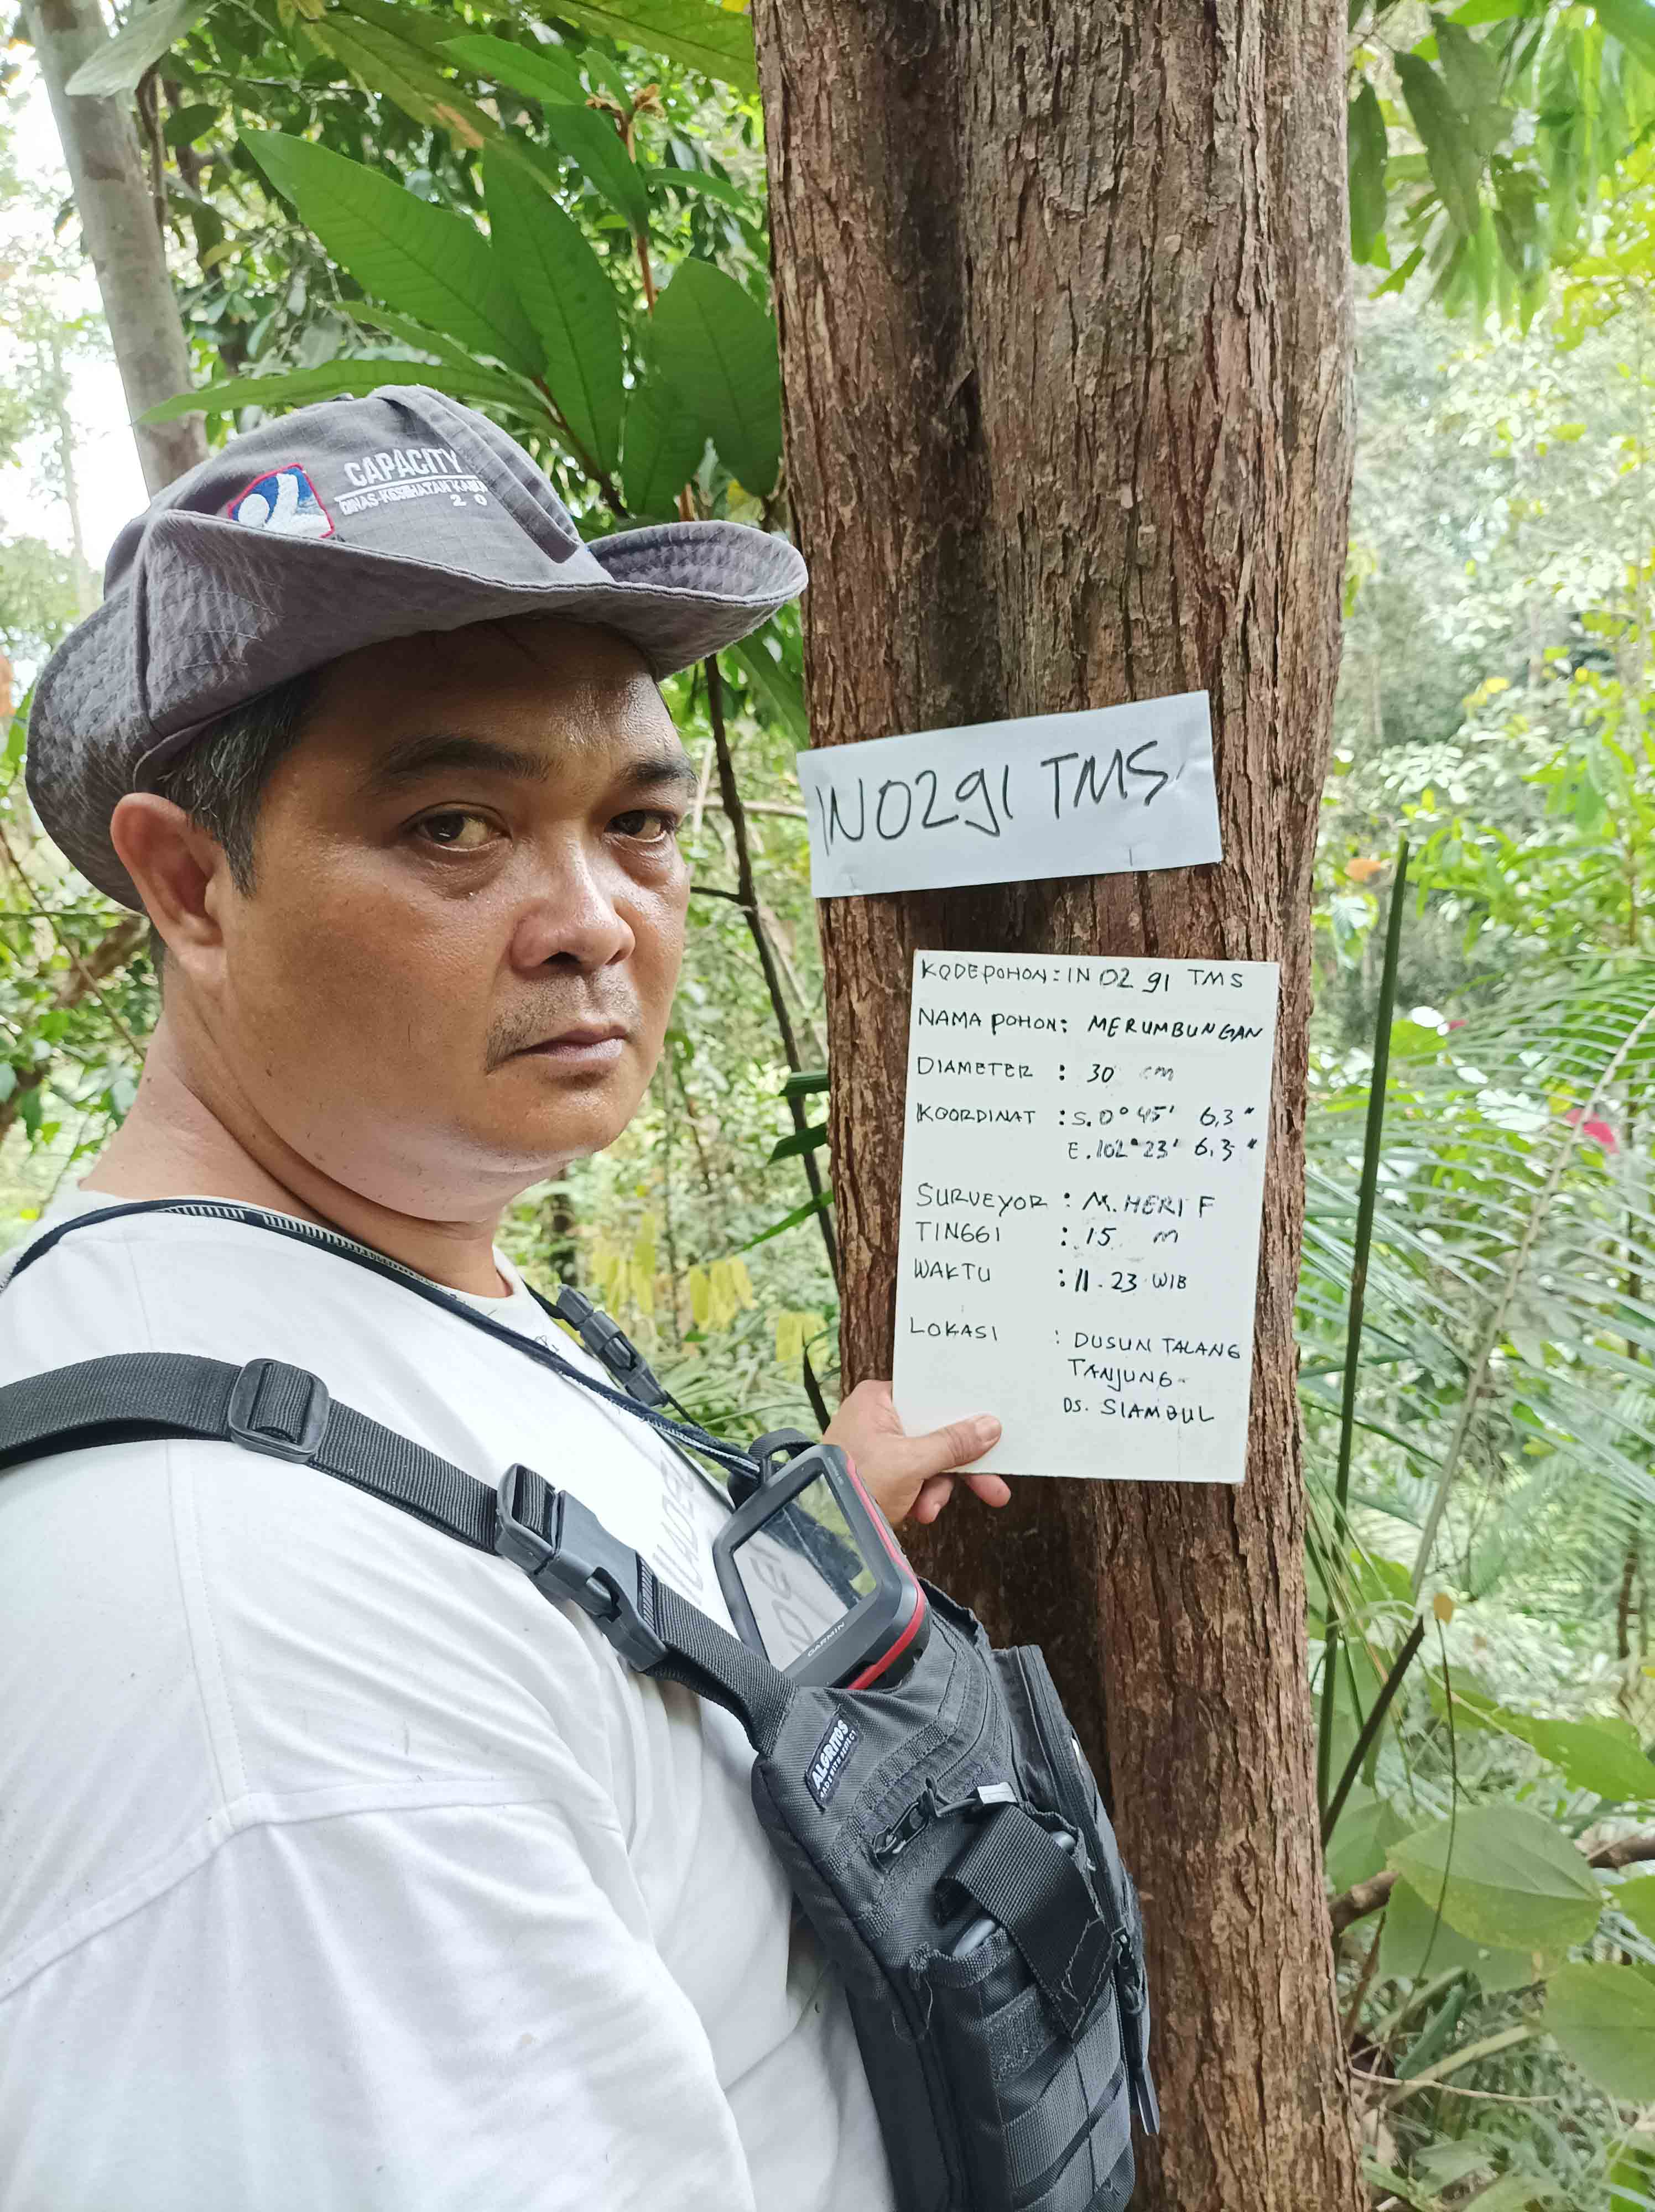 CAPACITY
DINAS KESEHATAN
20
IN0291 TMS
KODE POHON : IN 02 91 TMS
NAMA POHON : MERUMBUNGAN
DIAMETER : 30 cm
KOORDINAT : S. 0° 45' 6,3"
E. 102° 23' 6,3"
SURVEYOR : M. HERI F
TINGGI : 15 m
WAKTU : 11.23 WIB
LOKASI : DUSUN TALANG
TANJUNG
DS. SIAMBUL
GARMIN
ALGRITOS